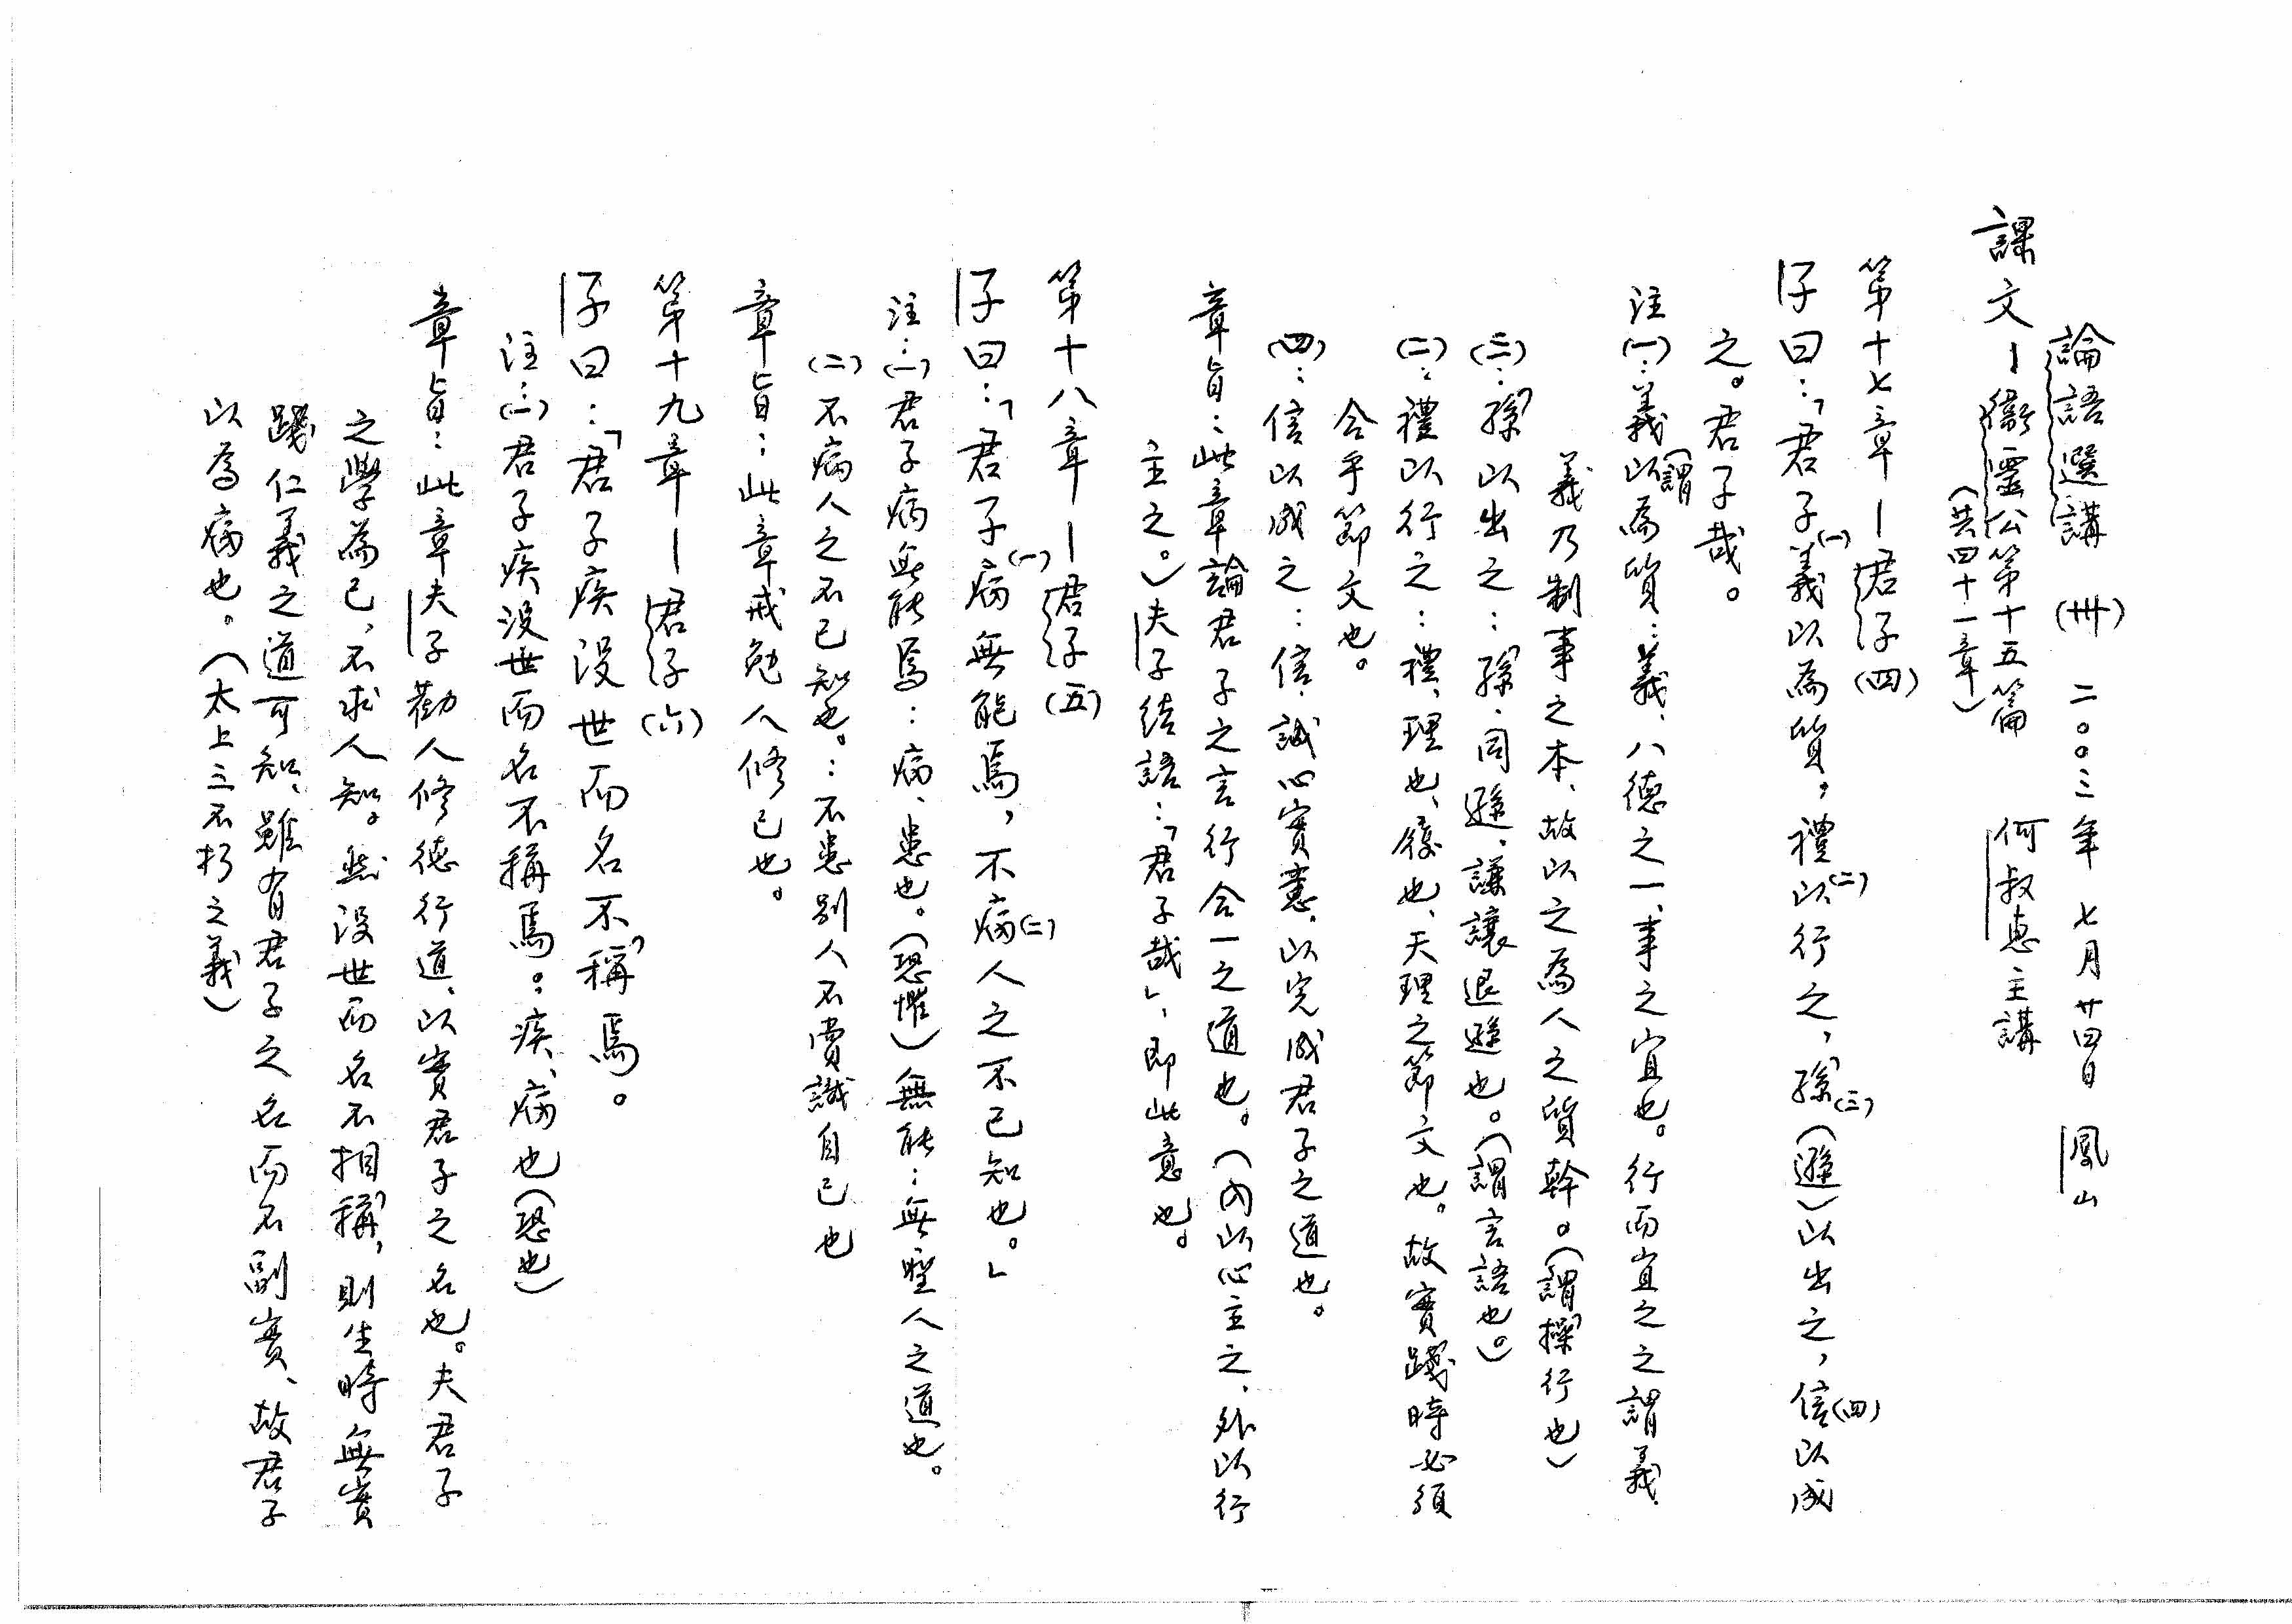 論語選講 (卅) 二〇〇三年 七月廿四日 鳳山
課文—衞靈公第十五篇 何叔惠主講
(共四十一章)
第十七章—君子(四)
子曰：「君子(一)義以為質，禮(二)以行之，孫(三)(遜)以出之，信(四)以成
之。君子哉。
注(一)：義(謂以為質：義、八德之一、事之宜也。行而宜之之謂義、
義乃制事之本、故以之為人之質幹。(謂操行也)
(三)：孫以出之：孫、同遜、謙讓退遜也。(謂言語也。)
(二)：禮以行之：禮、理也、履也、天理之節文也。故實踐時必須
合乎節文也。
(四)：信以成之：信、誠心實意、以完成君子之道也。
章旨：此章論君子之言行合一之道也。(內以心主之、外以行
主之。)夫子結語：「君子哉」、即此意也。
第十八章—君子(五)
子曰：「君子(一)病無能焉，不病(二)人之不己知也。」
注：(一)君子病無能焉：病、患也。(恐懼)無能：無聖人之道也。
(二)不病人之不己知也。：不患別人不賞識自己也
章旨：此章戒勉人修己也。
第十九章—君子(六)
子曰：「君子疾没世而名不稱焉。
注：(一)君子疾没世而名不稱焉。：疾、病也(恐也)
章旨：此章夫子勸人修德行道、以實君子之名也。夫君子
之學為己、不求人知。然没世而名不相稱，則生時無實
踐仁義之道可知、雖有君子之名而名副實、故君子
以為病也。(太上三不朽之義)